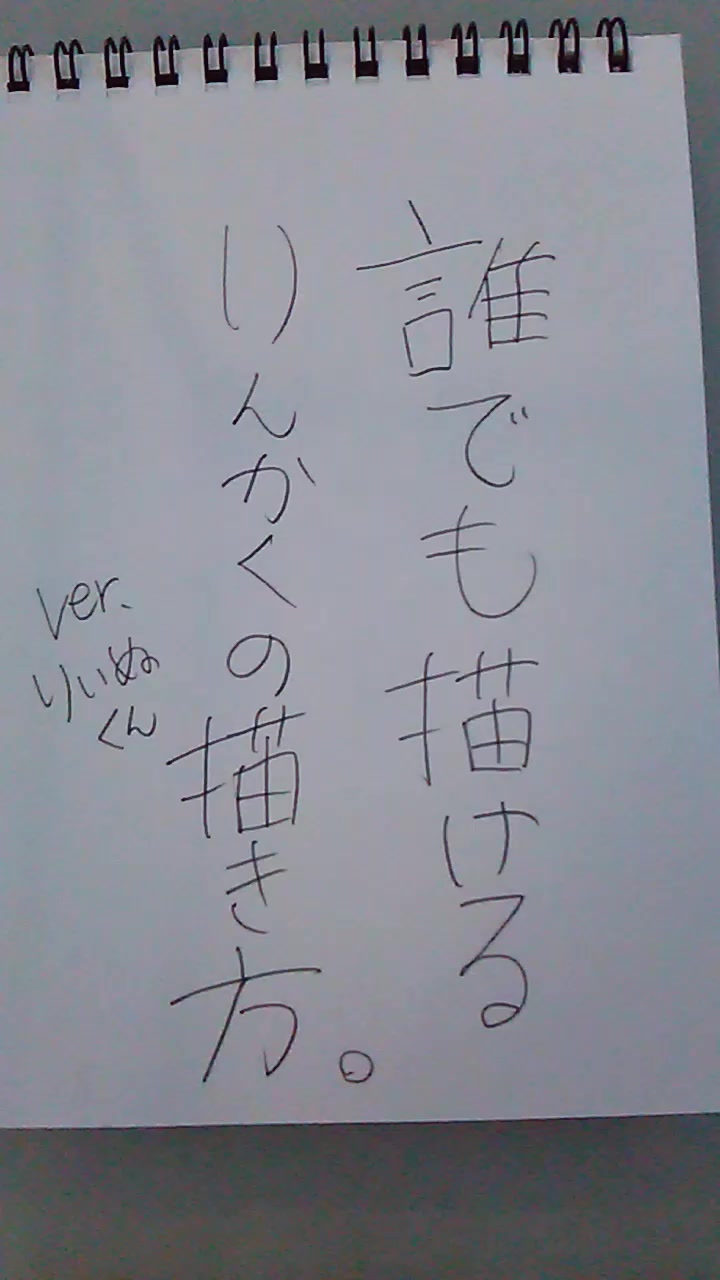 誰でも描ける
りんかくの描き方。
ver.
りいぬ
くん